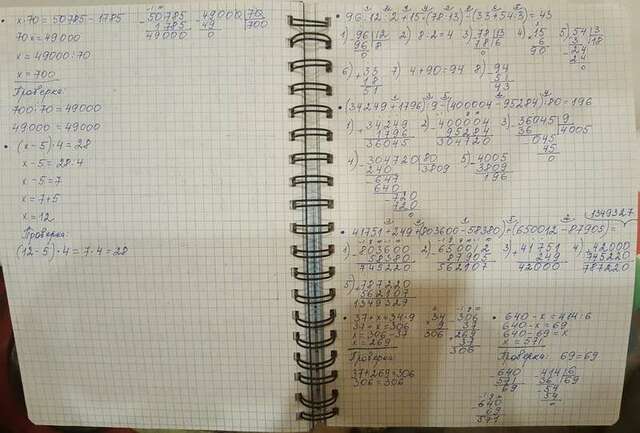 x·70=50785-1785
70x=49000
x=49000:70
x=700
Проверка
700·70=49000
49000=49000
50785
1785
49000
49000 70
49 700
0
• (x-5)·4=28
x-5=28:4
x-5=7
x=7+5
x=12
Проверка:
(12-5)·4=7·4=28
• 96:12:2+15·(78:13)-(33+54:3)=43
1) 96 12
96 8
0
2) 8:2=4
3) 78 13
78 6
0
4) 15
6
90
5) 54 3
3 18
24
24
0
6) 33
18
51
7) 4+90=94
8) 94
51
43
• (34249+1796):9-(400004-95284):80=196
1) 34249
1796
36045
2) 400004
95284
304720
3) 36045 9
36 4005
045
45
0
4) 304720 80
240 3809
647
640
720
720
0
5) 4005
3809
196
1349327
• 41751+249+(803600-58380)+(650012-87905)=
1) 803600
58380
745220
2) 650012
87905
562107
3) 41751
249
42000
4) 42000
745220
787220
5) 787220
562107
1349327
• 37+x=34·9
37+x=306
x=306-37
x=269
Проверка
37+269=306
306=306
34
9
306
306
37
269
37
306
• 640-x=414:6
640-x=69
640-69=x
x=571
Проверка: 69=69
640
571
69
414 6
36 69
54
54
0
640
69
571